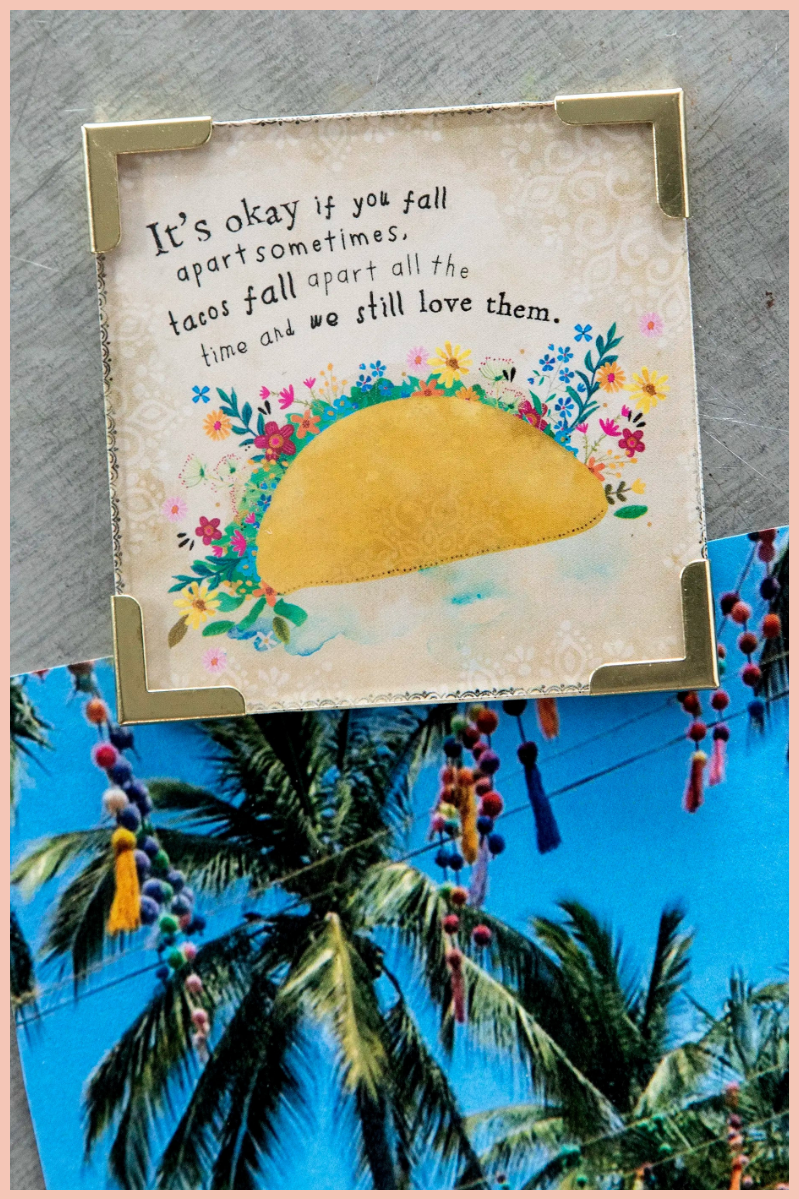 It's okay if you fall
apart sometimes,
tacos fall apart all the
time and we still love them.